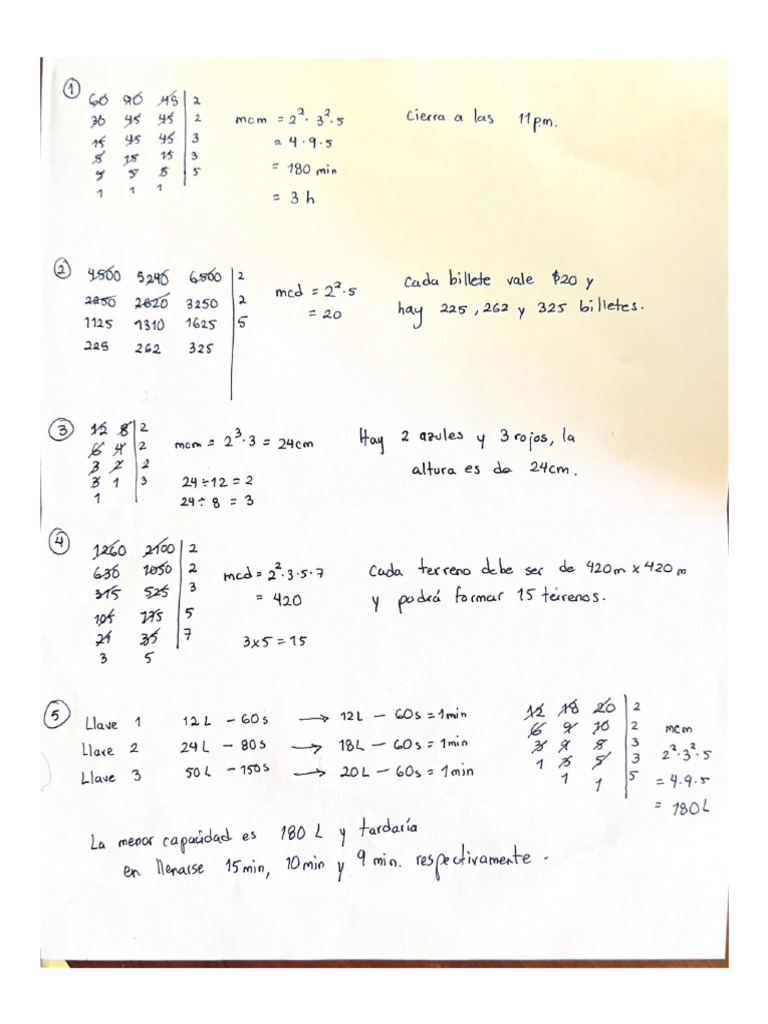 ① 60 90 45 | 2
30 45 45 | 2 mcm = 2²· 3²· 5 Cierra a las 11pm.
15 45 45 | 3 = 4 · 9 · 5
5 15 15 | 3 = 180 min
5 5 5 | 5 = 3 h
1 1 1
② 4500 5240 6500 | 2
2250 2620 3250 | 2 mcd = 2²· 5 Cada billete vale $20 y
1125 1310 1625 | 5 = 20 hay 225, 262 y 325 billetes.
225 262 325
③ 12 8 | 2
6 4 | 2 mcm = 2³· 3 = 24cm Hay 2 azules y 3 rojos, la
3 2 | 2 altura es de 24cm.
3 1 | 3 24 ÷ 12 = 2
1 24 ÷ 8 = 3
④ 1260 2100 | 2
630 1050 | 2 mcd = 2²· 3 · 5 · 7 Cada terreno debe ser de 420m x 420m
315 525 | 3 = 420 y podrá formar 15 terrenos.
105 175 | 5
21 35 | 7 3x5 = 15
3 5
⑤ Llave 1 12L - 60s → 12L - 60s = 1min 12 18 20 | 2
Llave 2 24L - 80s → 18L - 60s = 1min 6 9 10 | 2 mcm
Llave 3 50L - 150s → 20L - 60s = 1min 3 9 5 | 3 2²· 3²· 5
1 3 5 | 3 = 4 · 9 · 5
1 1 | 5 = 180L
La menor capacidad es 180 L y tardaría
en llenarse 15min, 10min y 9 min. respectivamente.